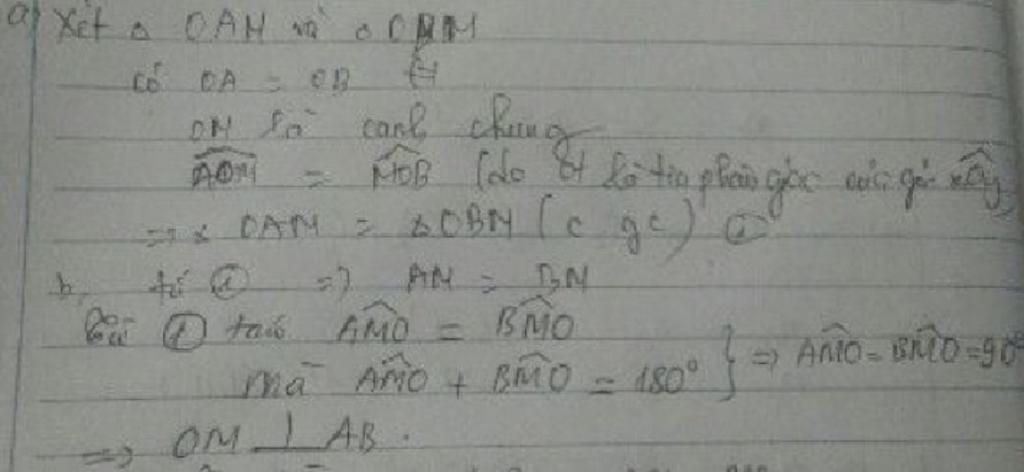 a) Xét △ OAM và △ OBM
Có OA = OB
OM là cạnh chung
AOM^ = MOB^ (do Ot là tia phân giác của góc xOy^)
=> △ OAM = △ OBM ( c gc ) ①
b, từ ① => AM = BM
từ ① ta có AMO^ = BMO^
mà AMO^ + BMO^ = 180° } => AMO^ = BMO^ = 90°
=> OM ⊥ AB .